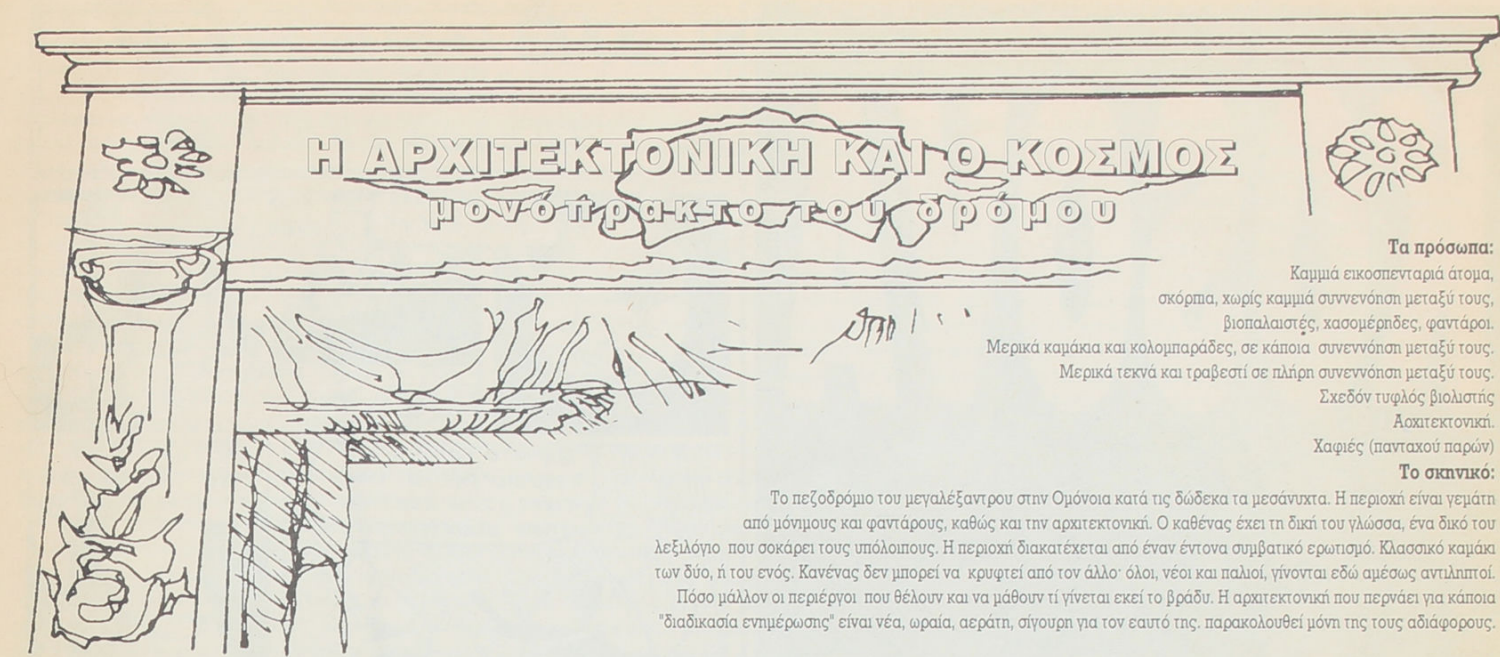 Η ΑΡΧΙΤΕΚΤΟΝΙΚΗ ΚΑΙ Ο ΚΟΣΜΟΣ
μονόπρακτο του δρόμου
Τα πρόσωπα:
Καμμιά εικοσπενταριά άτομα,
σκόρπια, χωρίς καμμιά συννενόηση μεταξύ τους,
βιοπαλαιστές, χασομέρηδες, φαντάροι.
Μερικά καμάκια και κολομπαράδες, σε κάποια συνεννόηση μεταξύ τους.
Μερικά τεκνά και τραβεστί σε πλήρη συνεννόηση μεταξύ τους.
Σχεδόν τυφλός βιολιστής
Αρχιτεκτονική.
Χαφιές (πανταχού παρών)
Το σκηνικό:
Το πεζοδρόμιο του μεγαλέξαντρου στην Ομόνοια κατά τις δώδεκα τα μεσάνυχτα. Η περιοχή είναι γεμάτη
από μόνιμους και φαντάρους, καθώς και την αρχιτεκτονική. Ο καθένας έχει τη δική του γλώσσα, ένα δικό του
λεξιλόγιο που σοκάρει τους υπόλοιπους. Η περιοχή διακατέχεται από έναν έντονα συμβατικό ερωτισμό. Κλασσικό καμάκι
των δύο, ή του ενός. Κανένας δεν μπορεί να κρυφτεί από τον άλλο· όλοι, νέοι και παλιοί, γίνονται εδώ αμέσως αντιληπτοί.
Πόσο μάλλον οι περιέργοι που θέλουν και να μάθουν τί γίνεται εκεί το βράδυ. Η αρχιτεκτονική που περνάει για κάποια
"διαδικασία ενημέρωσης" είναι νέα, ωραία, αεράτη, σίγουρη για τον εαυτό της. παρακολουθεί μόνη της τους αδιάφορους.